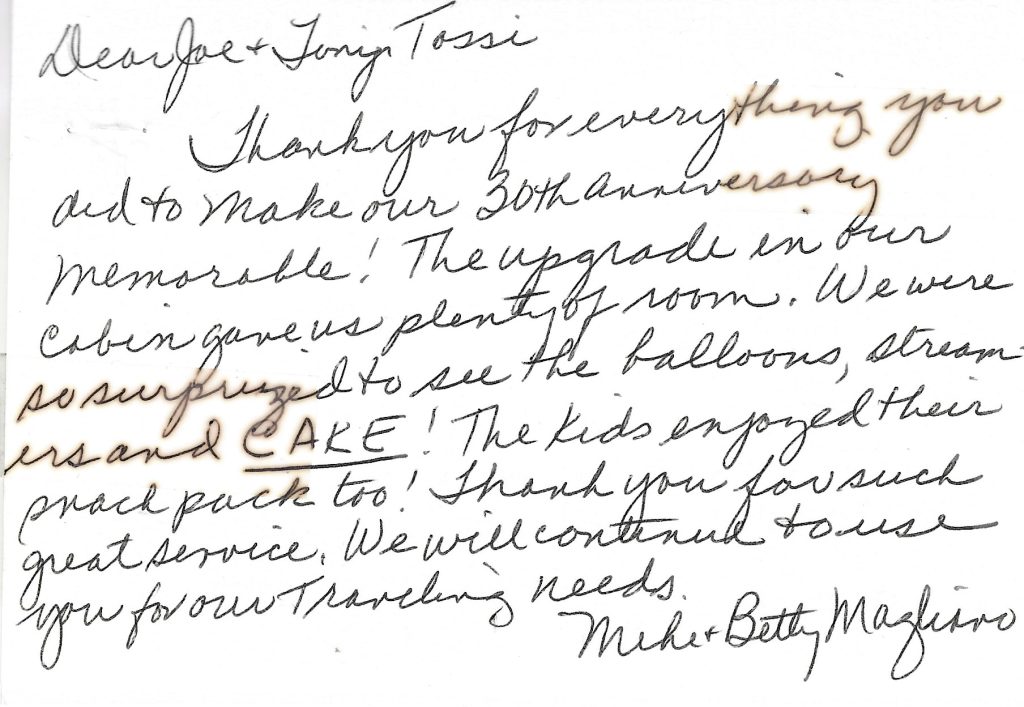 Dear Joe + Tonijn Tossi
Thank you for everything you
did to make our 30th anniversary
memorable! The upgrade in our
cabin gave us plenty of room. We were
so surprized to see the balloons, stream-
ers and CAKE! The kids enjoyed their
snack pack too! Thank you for such
great service. We will continud to use
you for our Traveling needs.
Mike + Betty Magliano